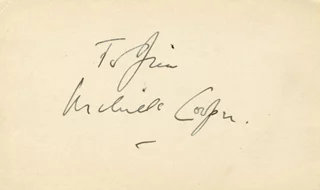 To Jim
Melville Cooper.